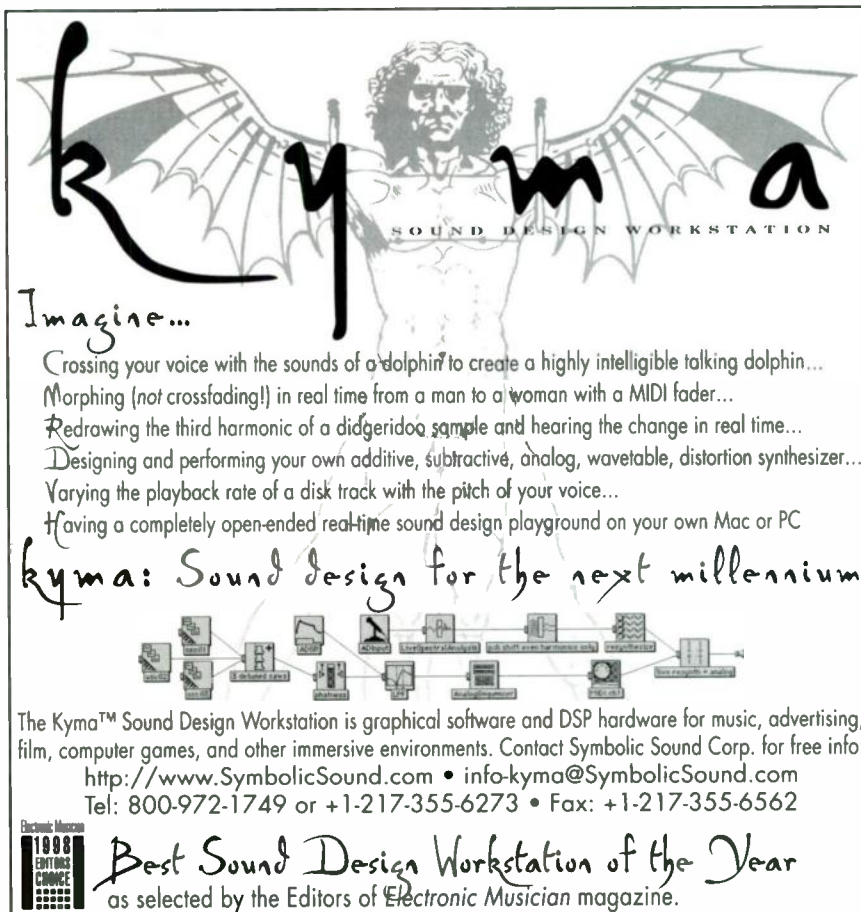 kyma
SOUND DESIGN WORKSTATION
Imagine...
Crossing your voice with the sounds of a dolphin to create a highly intelligible talking dolphin...
Morphing (not crossfading!) in real time from a man to a woman with a MIDI fader...
Redrawing the third harmonic of a didgeridoo sample and hearing the change in real time...
Designing and performing your own additive, subtractive, analog, wavetable, distortion synthesizer...
Varying the playback rate of a disk track with the pitch of your voice...
Having a completely open-ended real-time sound design playground on your own Mac or PC
kyma: Sound design for the next millennium
ADSR
ADInput
LiveSpectralAnalysis
resynthesize
LPF
The Kyma™ Sound Design Workstation is graphical software and DSP hardware for music, advertising,
film, computer games, and other immersive environments. Contact Symbolic Sound Corp. for free info
http://www.SymbolicSound.com • info-kyma@SymbolicSound.com
Tel: 800-972-1749 or +1-217-355-6273 • Fax: +1-217-355-6562
Electronic Musician
1998
EDITORS
CHOICE
Best Sound Design Workstation of the Year
as selected by the Editors of Electronic Musician magazine.